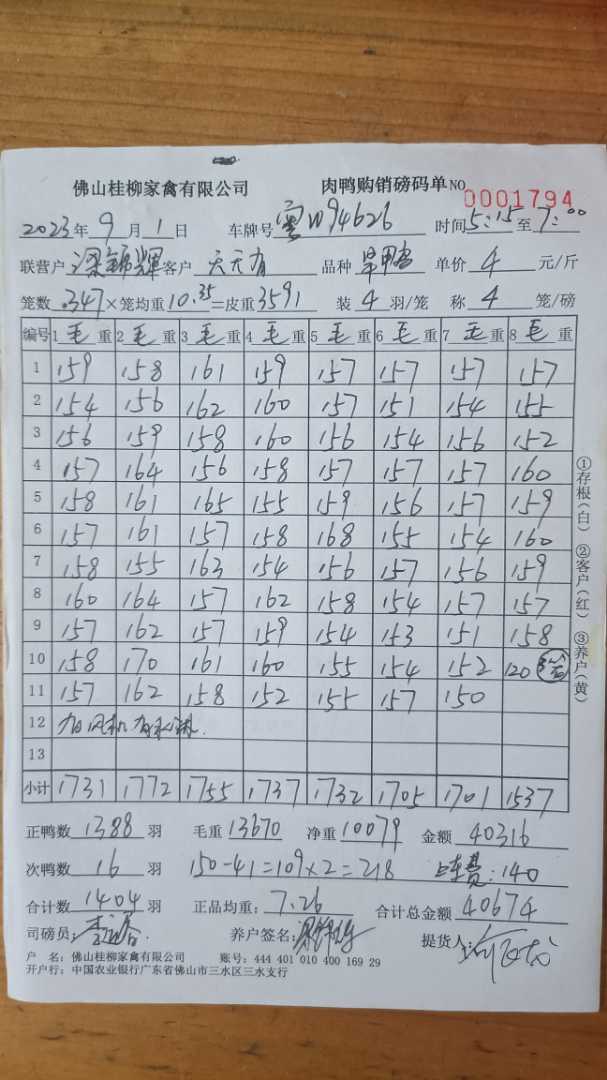 佛山桂柳家禽有限公司 肉鸭购销磅码单 NO 0001794
2023年9月1日 车牌号 94626 时间5:15至7:00
联营户 梁锦辉 客户 天天有 品种 单价 4 元/斤
笼数 347 ×笼均重 10.35 =皮重 3591 装 4 羽/笼 称 4 笼/磅
编号 1 毛 重 2 毛 重 3 毛 重 4 毛 重 5 毛 重 6 毛 重 7 毛 重 8 毛 重
1 159 158 161 159 157 157 157 157
2 154 156 162 160 157 151 154 155
3 156 159 158 160 156 154 156 152
4 157 164 156 158 157 157 157 160
5 158 161 165 155 159 156 157 159
6 157 161 157 158 168 155 154 160
7 158 155 163 154 156 157 156 159
8 160 164 157 162 158 154 157 157
9 157 162 157 159 154 153 151 158
10 158 170 161 160 155 154 152 120
11 157 162 158 152 155 157 150
12 有风机
13
小计 1731 1772 1755 1737 1732 1705 1701 1537
正鸭数 1388 羽 毛重 13670 净重 10079 金额 40316
次鸭数 16 羽 150-41=109×2=218 费:140
合计数 1404 羽 正品均重: 7.26 合计总金额 40674
司磅员: 养户签名: 梁锦辉 提货人:
户 名: 佛山桂柳家禽有限公司 账号: 444 401 010 400 169 29
开户行: 中国农业银行广东省佛山市三水区三水支行
①存根(白) ②客户(红) ③养户(黄)